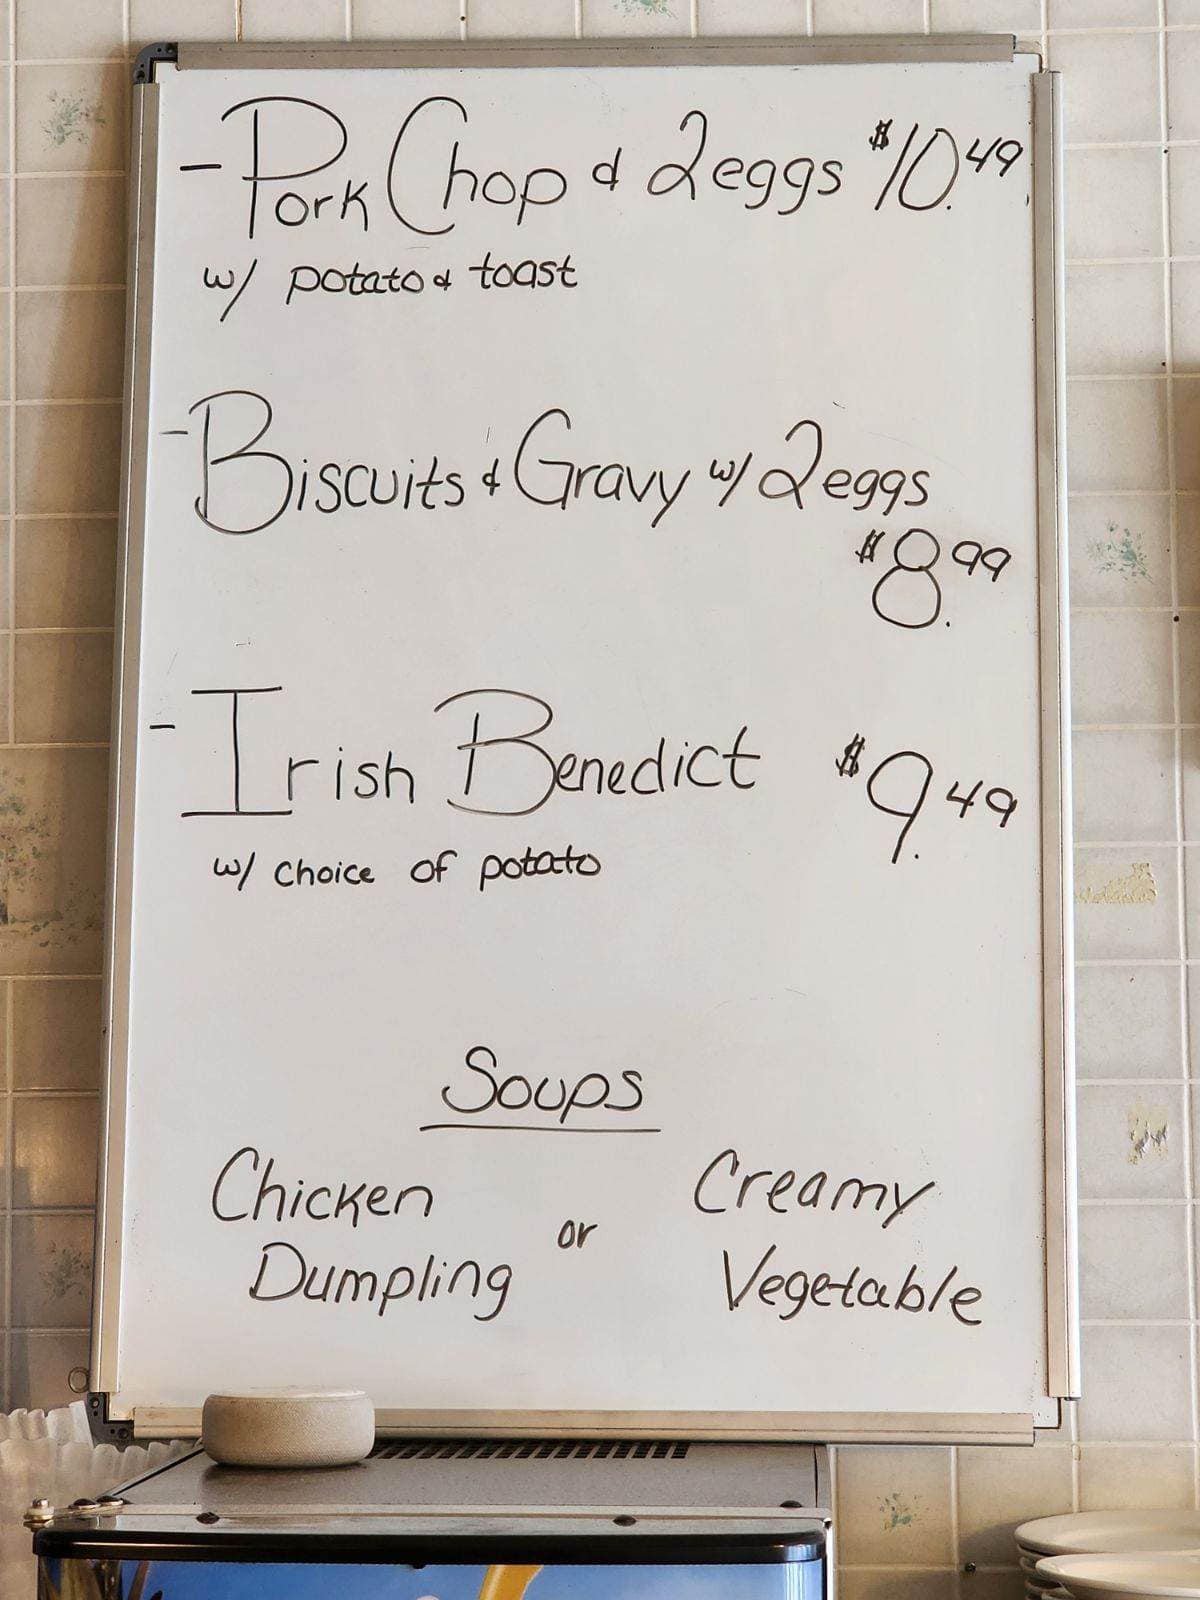 - Pork Chop & 2 eggs $10.49
w/ potato & toast
- Biscuits & Gravy w/ 2 eggs
$8.99
- Irish Benedict $9.49
w/ choice of potato
Soups
Chicken Dumpling or Creamy Vegetable